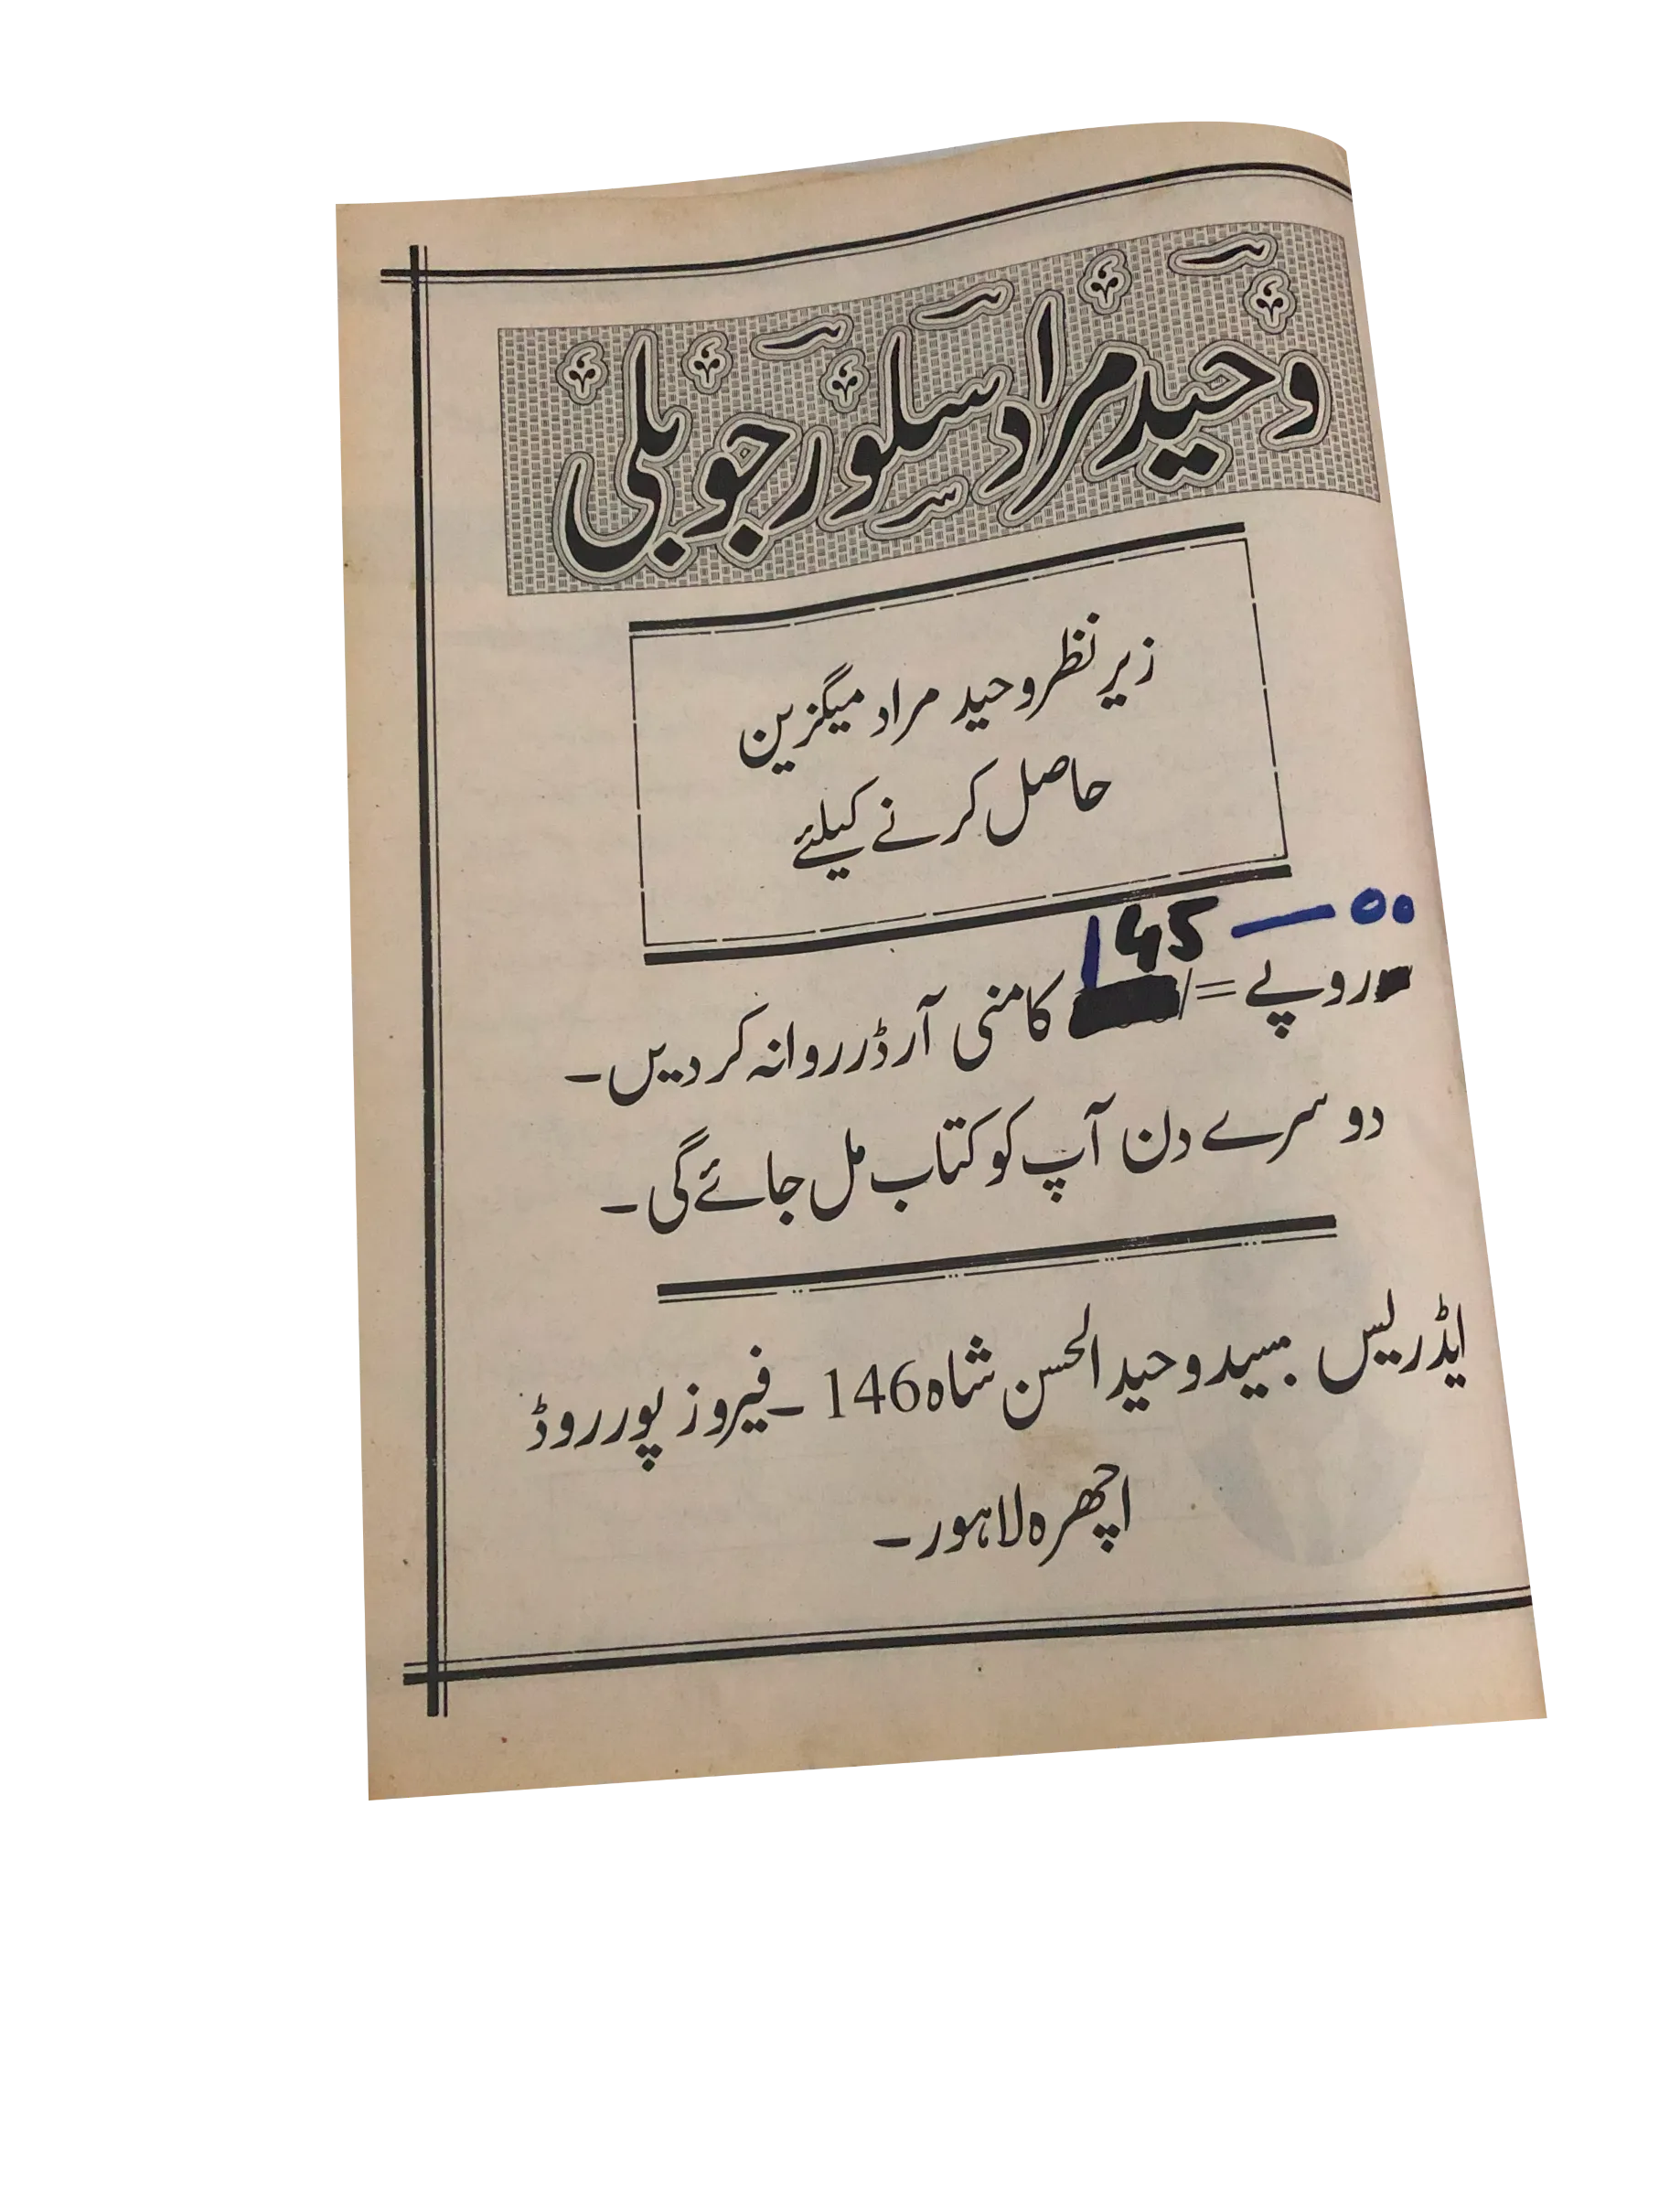 وحید مراد سلور جوبلی
زیر نظر وحید مراد میگزین
حاصل کرنے کیلئے
145 — 00
روپے =/ کا منی آرڈر روانہ کر دیں۔
دوسرے دن آپ کو کتاب مل جائے گی۔
ایڈریس : سید وحید الحسن شاہ 146 ۔ فیروز پور روڈ
اچھرہ لاہور۔